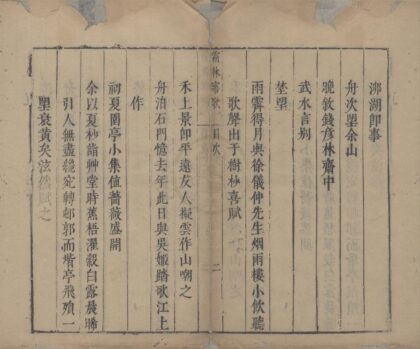 泖湖卽事
舟次望佘山
晚敀錢彥林齋中
武水言別
埜望
雨霽得月與徐儀仲先生烟雨樓小飲聽
歌聲出于樹杪喜賦
霜林寤歌 目次 二
禾上景卽平遠友人擬雲作山嘲之
舟泊石門憶去年此日與吳姬踏歌江上
作
初夏園亭小集值薔薇盛開
余以夏杪詣艸堂時蕉梧灌 白露晨晞
引人無盡綫宛轉 郭而堦亭飛頹一
望衰黃矣泫然賦之